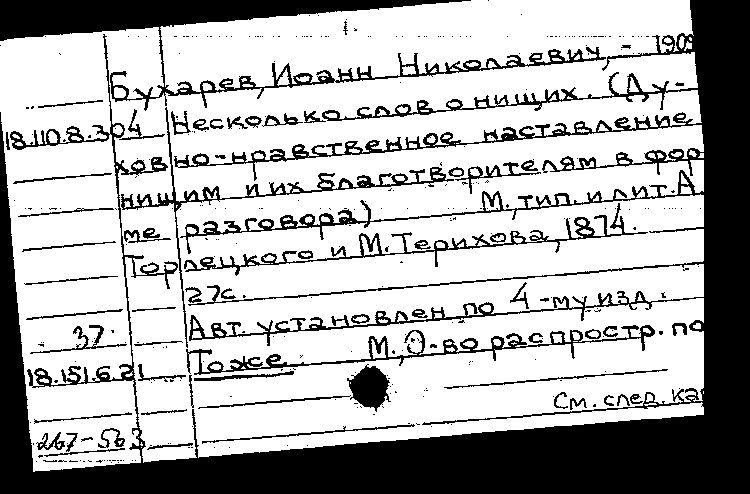 1.
Бухарев, Иоанн Николаевич, - 1909
18.110.8.304 Несколько слов о нищих. (Ду-
ховно-нравственное наставление
нищим и их благотворителям в фор
ме разговора) М., тип. и лит. А.
Торлецкого и М. Терихова, 1874.
27с.
37. Авт. установлен по 4-му изд.
18.151.6.21 Тоже. М., О-во распростр. по
См. след. кар
267-563